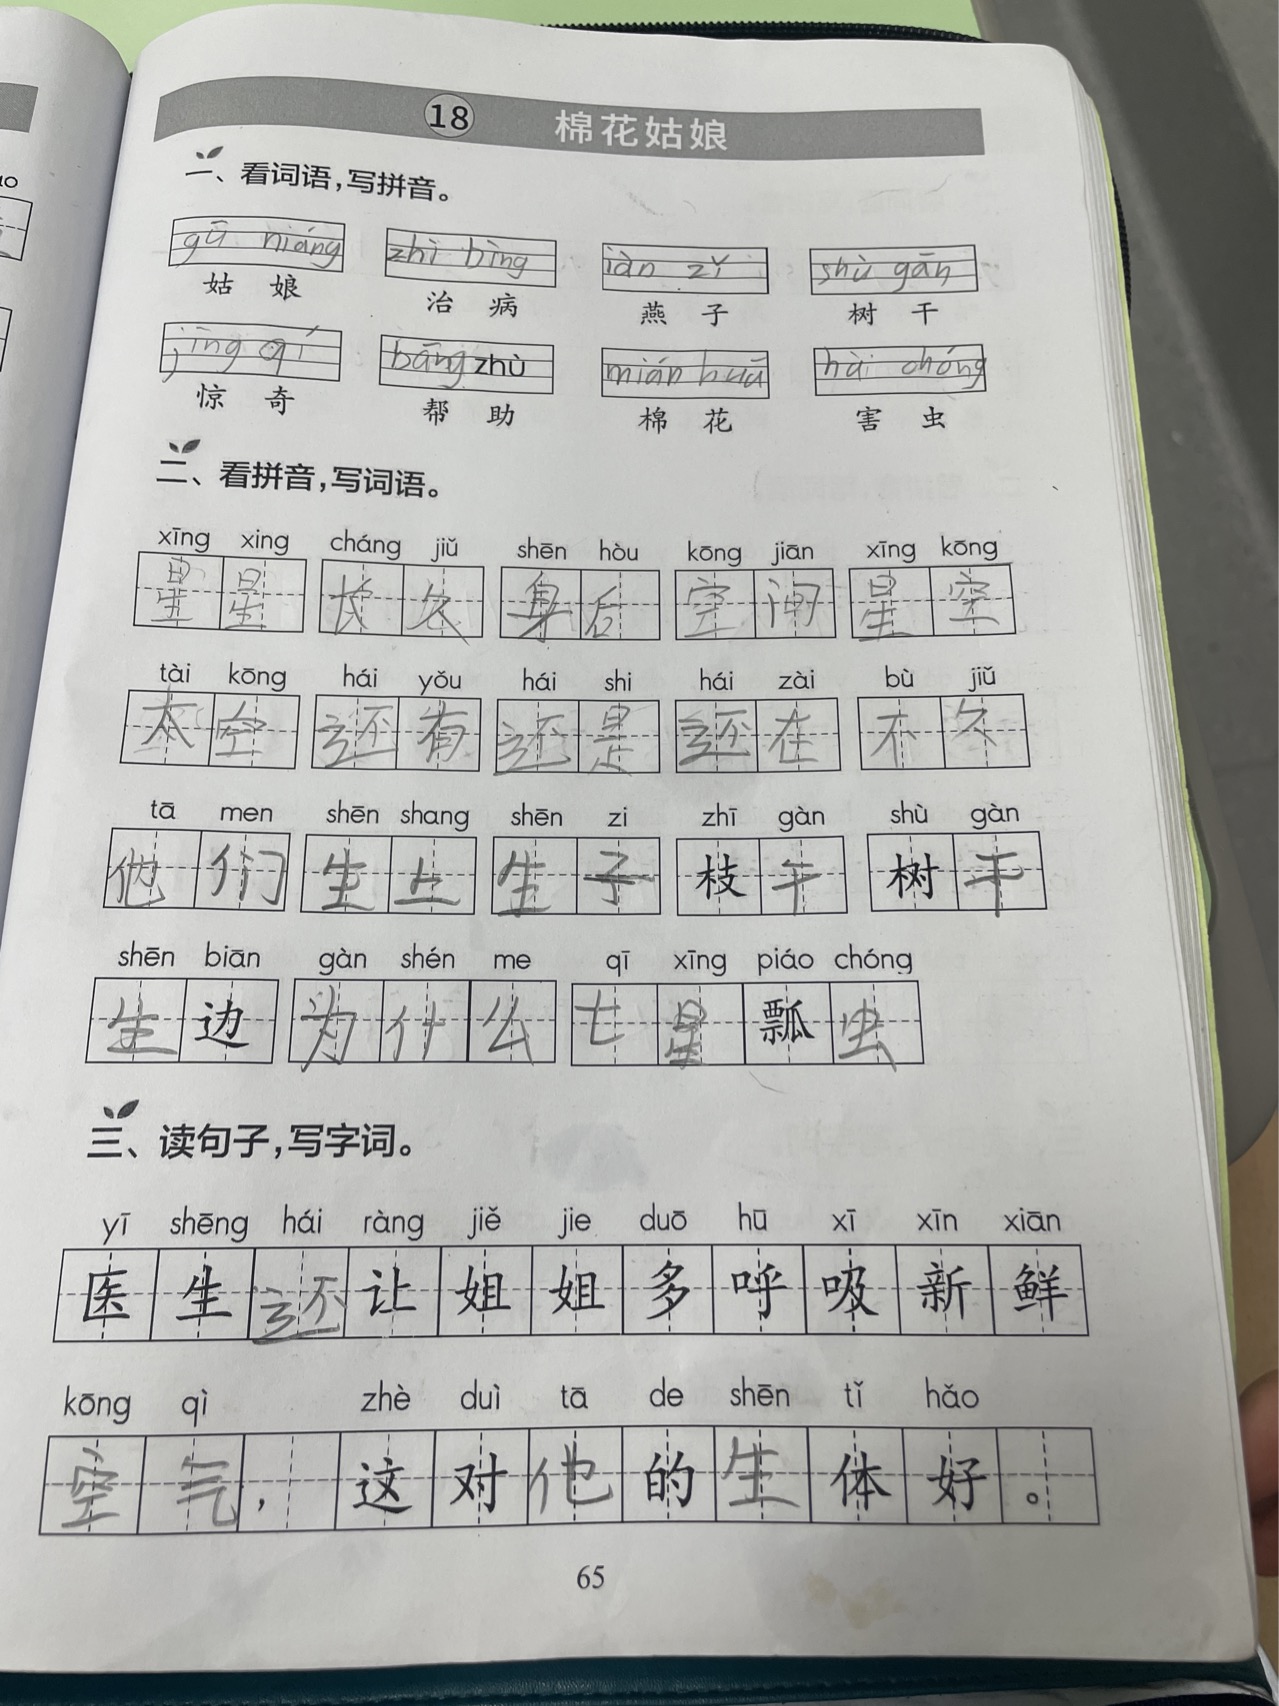 18 棉花姑娘
一、看词语，写拼音。
gū niáng zhì bìng iàn zǐ shù gān
姑 娘 治 病 燕 子 树 干
jīng qí bāng zhù mián huā hài chóng
惊 奇 帮 助 棉 花 害 虫
二、看拼音，写词语。
xīng xing cháng jiǔ shēn hòu kōng jiān xīng kōng
星 星 长 久 身 后 空 间 星 空
tài kōng hái yǒu hái shi hái zài bù jiǔ
空 还 有 还 是 还 在 不 久
tā men shēn shang shēn zi zhī gàn shù gàn
他 们 生 上 生 子 枝 干 树 干
shēn biān gàn shén me qī xīng piáo chóng
生 边 为 什 么 七 星 瓢 虫
三、读句子，写字词。
yī shēng hái ràng jiě jie duō hū xī xīn xiān
医 生 还 让 姐 姐 多 呼 吸 新 鲜
kōng qì zhè duì tā de shēn tǐ hǎo
空 气 ， 这 对 他 的 生 体 好 。
65